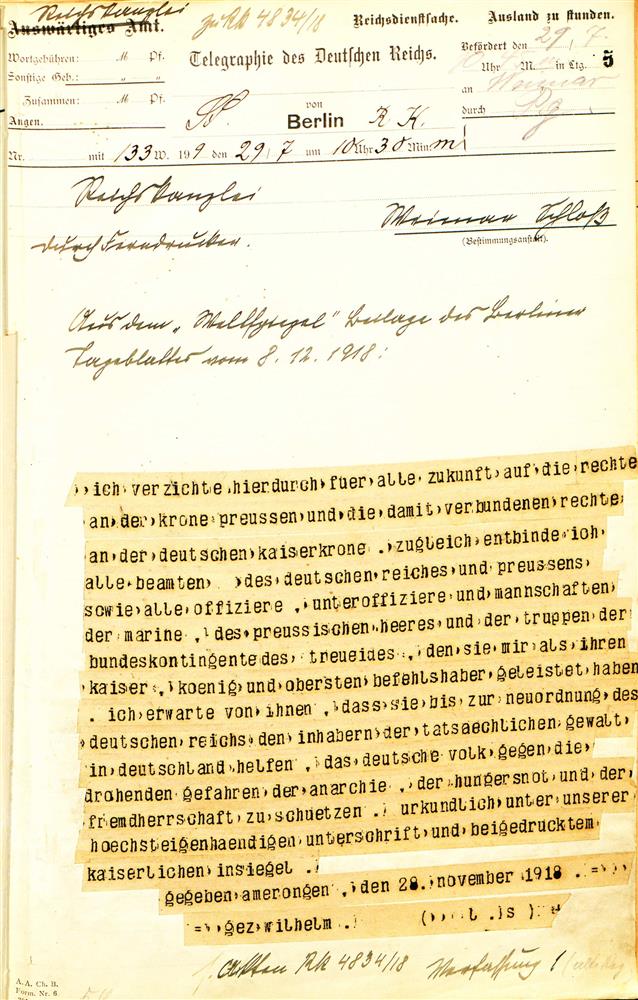 Reichskanzlei
Auswärtiges Amt.
zu RK 4834/18
Reichsdienstsache.
Ausland zu stunden.
Wortgebühren: M Pf.
Sonstige Geb.: " "
Zusammen: M Pf.
Angen.
Telegraphie des Deutschen Reichs.
Befördert den 29, 7.
Uhr M. in Ltg. 5
an Weimar
durch
von
Berlin R. K.
Nr. mit 133 W. 199 den 29, 7 um 10 Uhr 30 Min m
Reichskanzlei
durch Ferndrucker.
Weimar Schloß
(Bestimmungsanstalt).
Aus dem „Weltspiegel" Beilage des Berliner
Tageblattes vom 8. 12. 1918:
ich verzichte hierdurch fuer alle zukunft auf die rechte
an der krone preussen und die damit verbundenen rechte
an der deutschen kaiserkrone . zugleich entbinde ich
alle beamten des deutschen reiches und preussens
sowie alle offiziere , unteroffiziere und mannschaften
der marine , des preussischen heeres und der truppen der
bundeskontingente des treueides , den sie mir als ihren
kaiser , koenig und obersten befehlshaber geleistet haben
. ich erwarte von ihnen , dass sie bis zur neuordnung des
deutschen reichs den inhabern der tatsaechlichen gewalt
in deutschland helfen , das deutsche volk gegen die
drohenden gefahren der anarchie , der hungersnot und der
fremdherrschaft zu schuetzen . urkundlich unter unserer
hoechsteigenhaendigen unterschrift und beigedrucktem
kaiserlichen insiegel .
gegeben amerongen , den 28. november 1918 . =
= gez wilhelm . ( l .s )
Akten RK 4834/18 Verfassung 1
A.A. Ch. B.
Form. Nr. 6